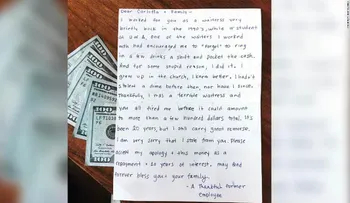 Dear Carlotta + Family -
I worked for you as a waitress very
briefly back in the 1990's, while a student
at U of A. One of the waiters I worked
with had encouraged me to "forget" to ring
in a few drinks a shift and pocket the cash.
And for some stupid reason, I did it. I
grew up in the church, I knew better, I hadn't
stolen a dime before then, nor have I since.
Thankfully, I was a terrible waitress and
you all fired me before it could amount
to more than a few hundred dollars total. It's
been 20 years, but I still carry great remorse.
I am very sorry that I stole from you. Please
accept my apology + this money as a
repayment + 20 years of interest. May God
forever bless you + your family.
- A Thankful Former
employee